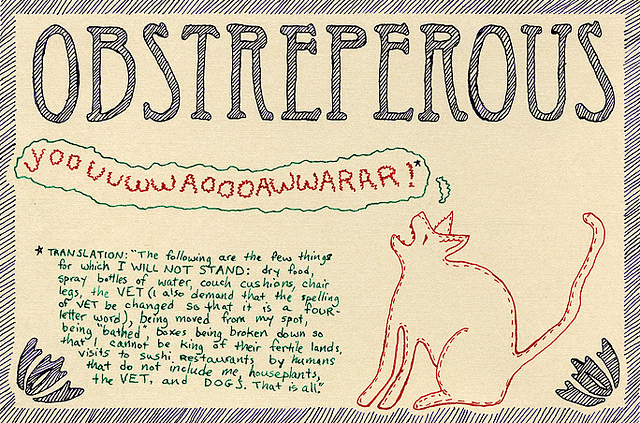 OBSTREPEROUS
YOOUUUWWAOOOAWWARAR!*
* TRANSLATION: "The following are the few things
for which I WILL NOT STAND: dry food,
spray bottles of water, couch cushions, chair
legs, the VET (I also demand that the spelling
of VET be changed so that it is a FOUR-
letter word), being moved from my spot,
being "bathed", boxes being broken down so
that I cannot be King of their fertile lands,
visits to sushi restaurants by humans
that do not include me, houseplants,
the VET, and DOGS. That is all."